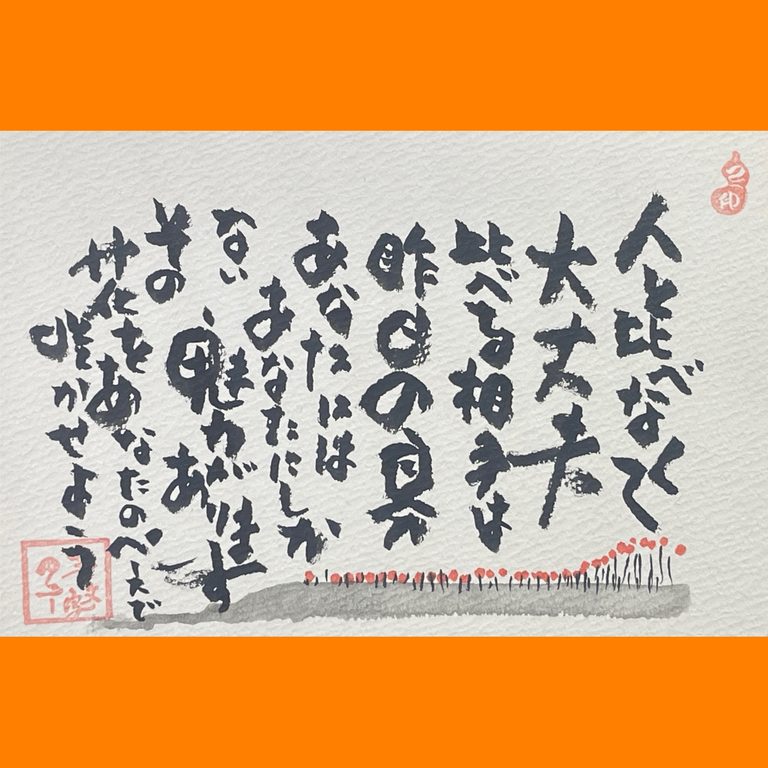 人と比べなくて
大丈夫
比べる相手は
昨日の自分
あなたには
あなたにしか
ない
魅力があります
その
花をあなたのペースで
咲かせよう